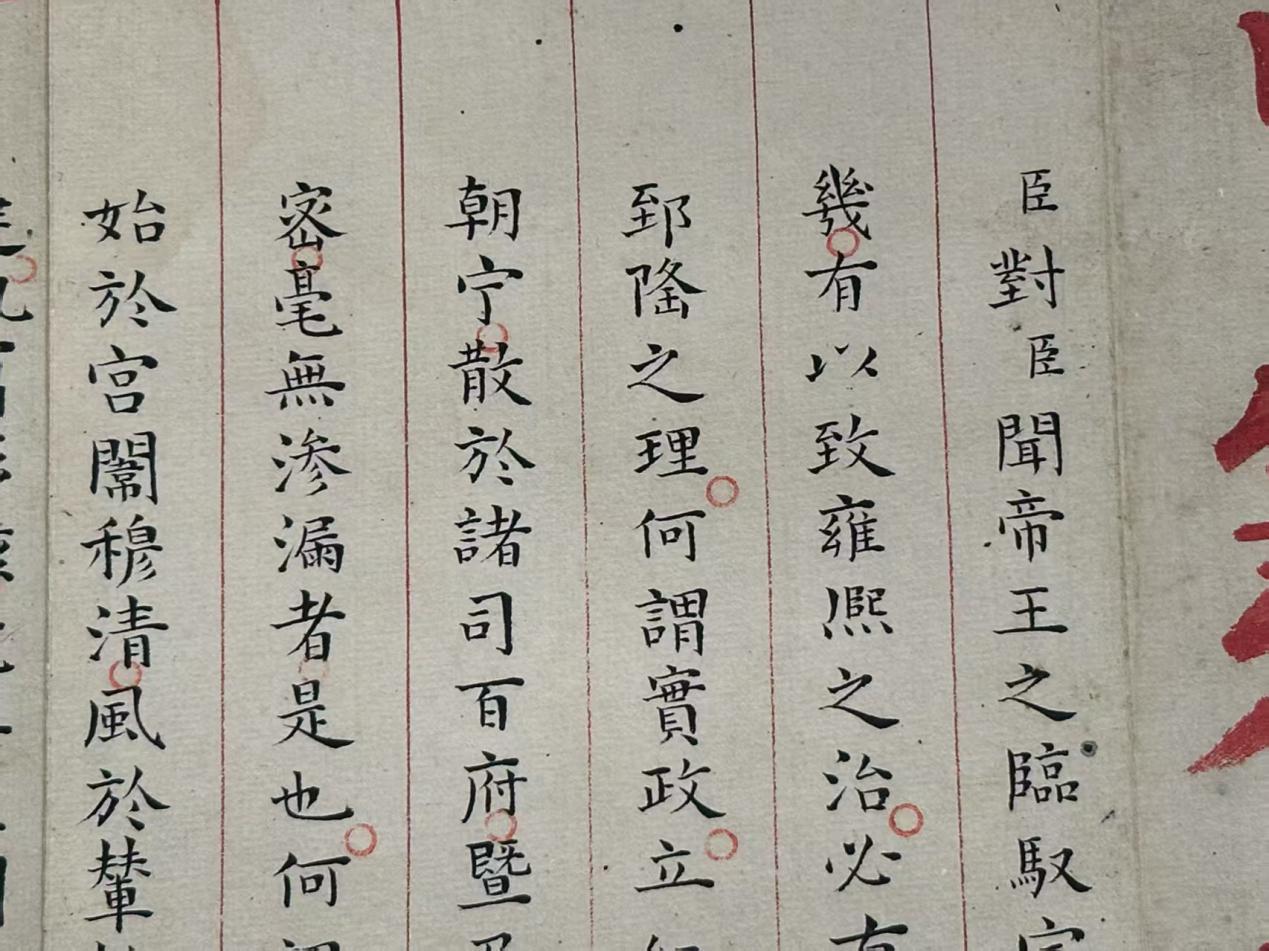 臣對臣聞帝王之臨馭宇
幾有以致雍熈之治必有
郅隆之理何謂實政立
朝宁散於諸司百府暨
宻毫無滲漏者是也何
始於宮闈穆清風於輦